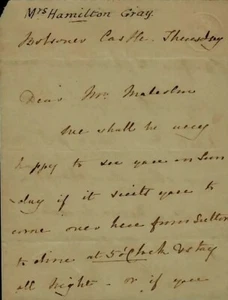 Mrs Hamilton Gray.
Bolsover Castle. Thursday
Dear Mr. Malcolm
we shall be very
happy to see you on Sun
day if it suits you to
come over here from Sutton
to dine at 5 o'Clock & stay
all night - or if you